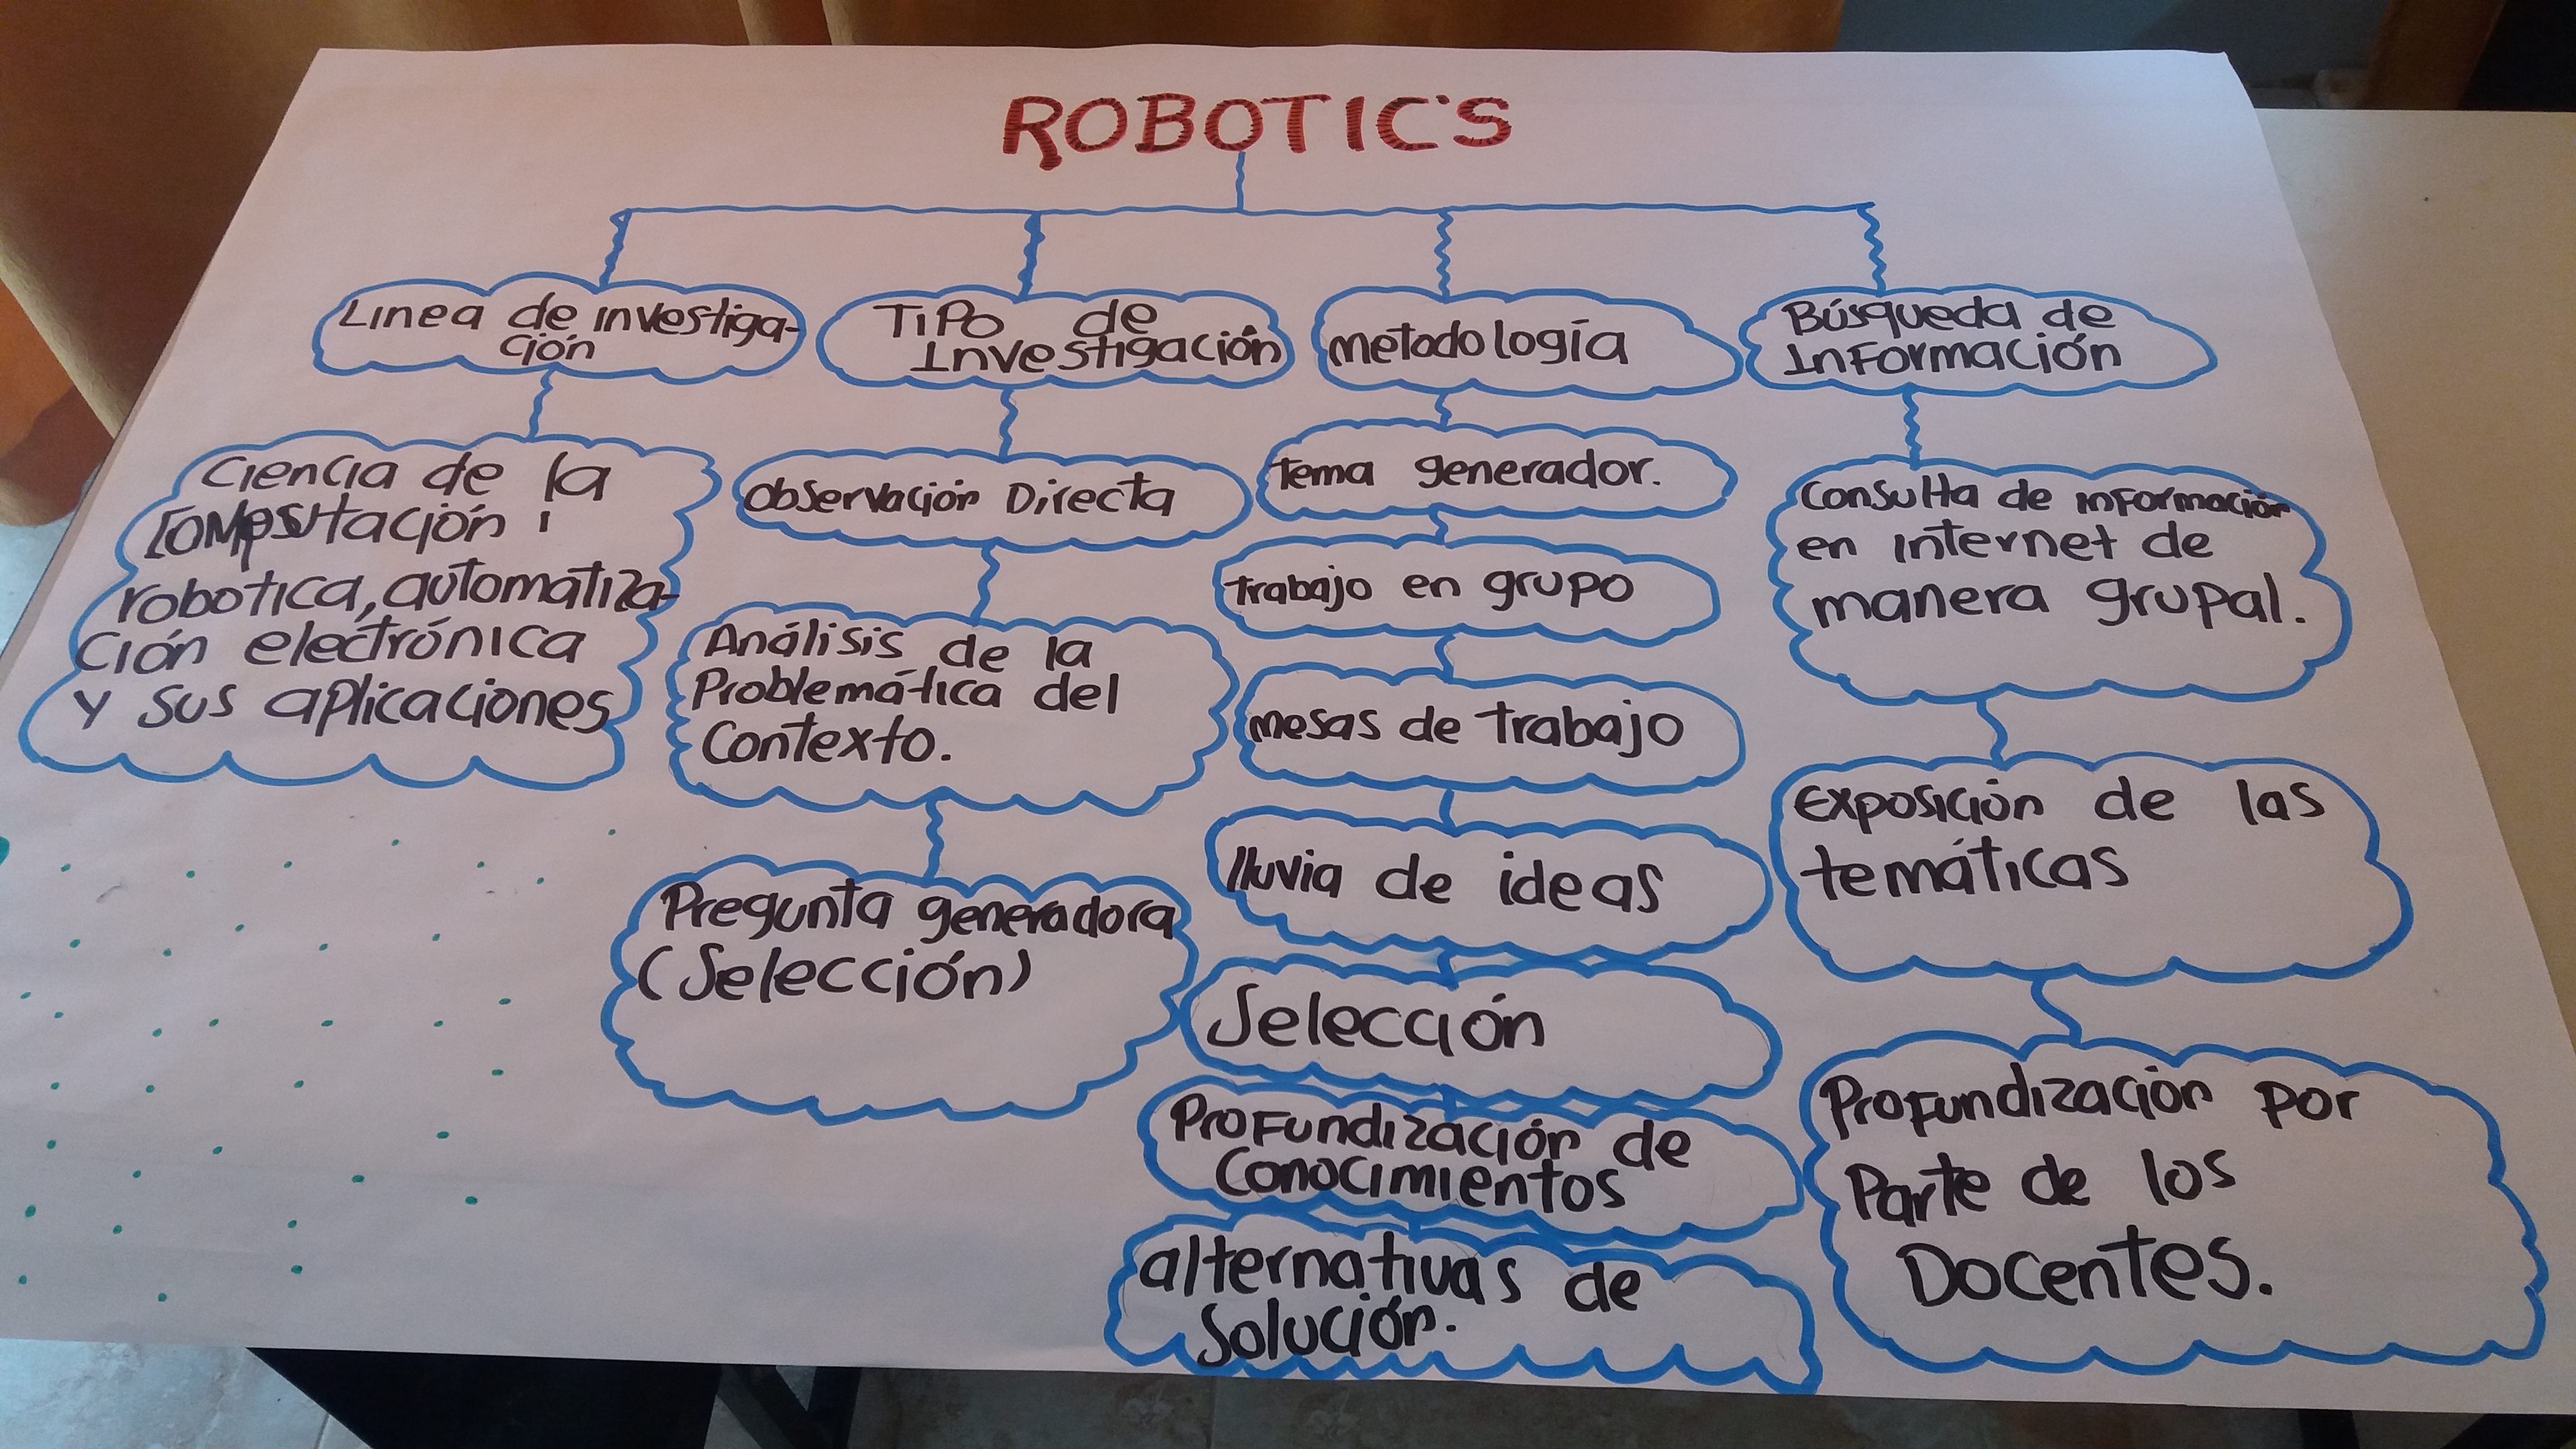 ROBOTIC'S
Linea de investiga-
ción
Ciencia de la
Computación,
robotica, automatiza-
ción electrónica
y sus aplicaciones
Tipo de
Investigación
Observación Directa
Análisis de la
Problemática del
Contexto.
Pregunta generadora
(Selección)
metodología
tema generador.
trabajo en grupo
mesas de trabajo
lluvia de ideas
Selección
Profundización de
Conocimientos
alternativas de
Solución.
Búsqueda de
Información
Consulta de información
en internet de
manera grupal.
Exposición de las
temáticas
Profundización por
Parte de los
Docentes.